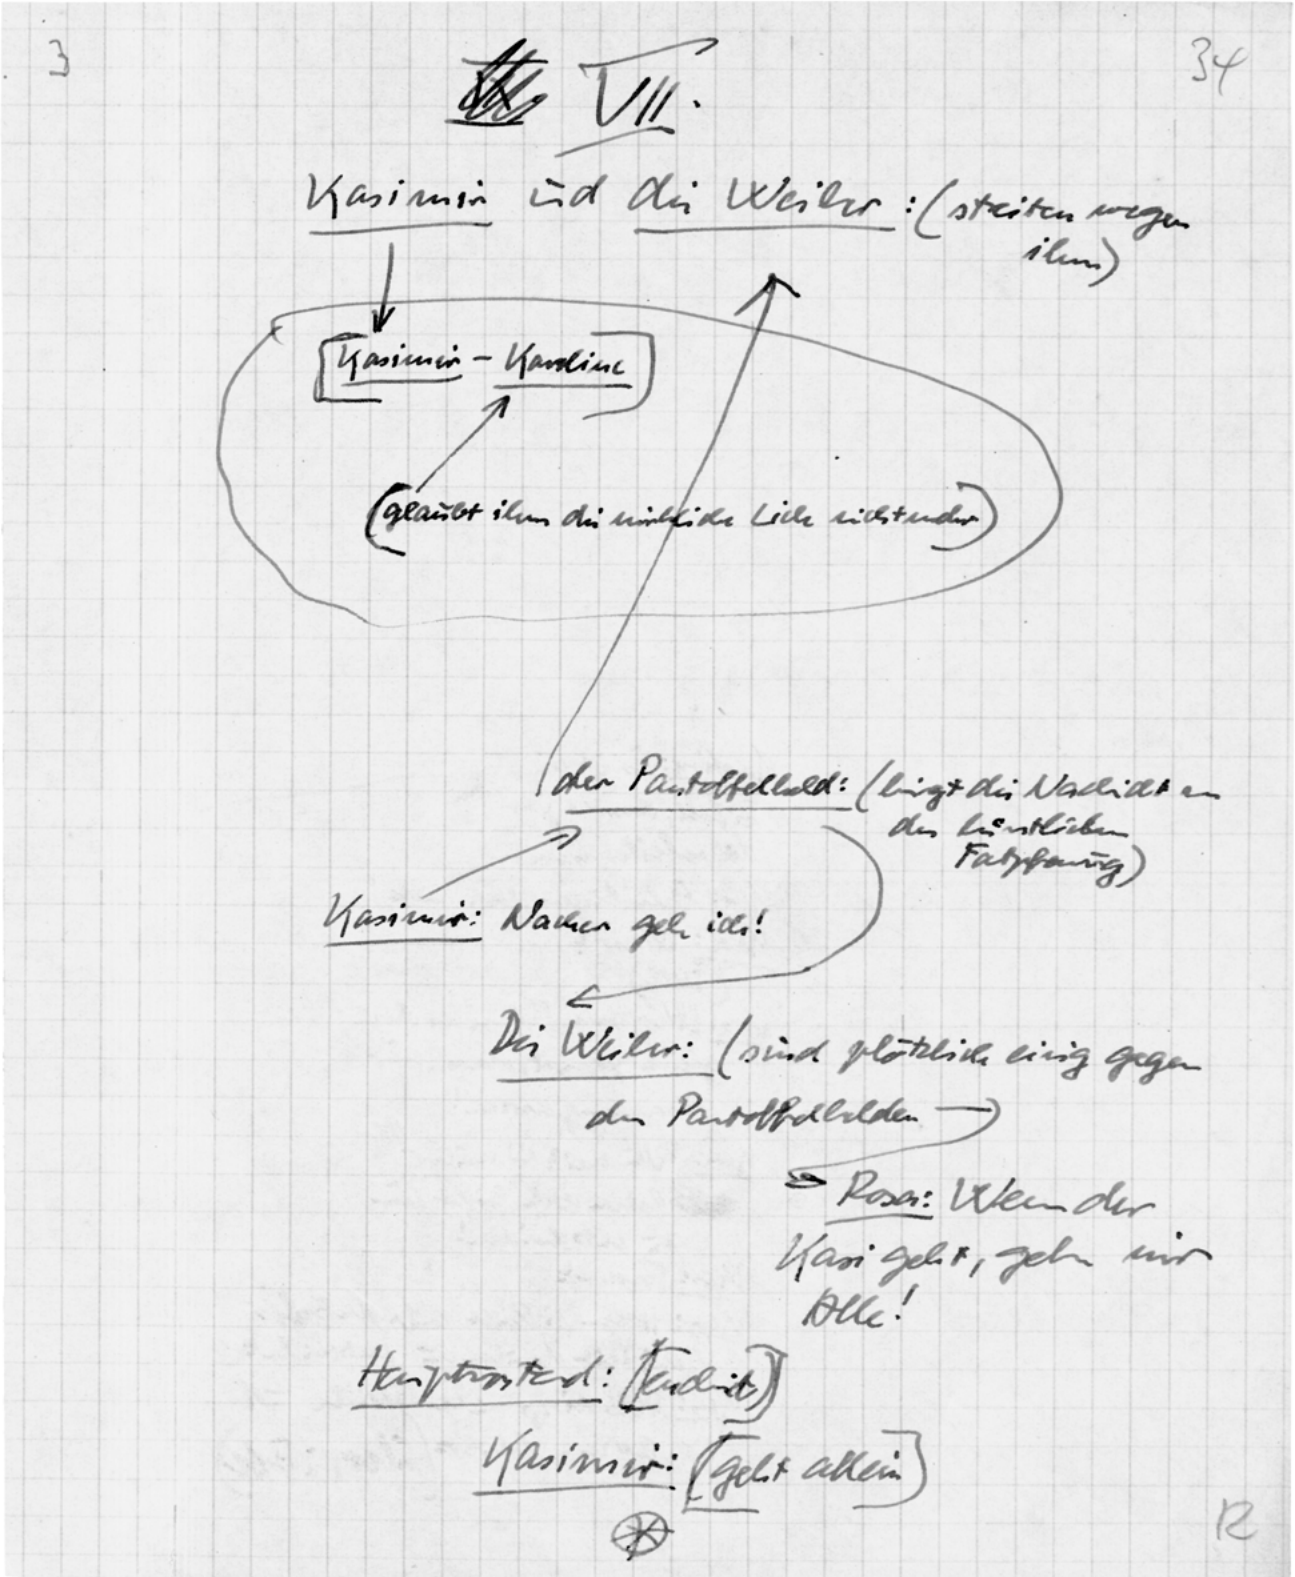 3
34
VII.
Kasimir und die Weiber: (streiten wegen
ihm)
[Kasimir – Karoline]
(glaubt ihm die wirkliche Liebe nicht mehr)
der Pantoffelheld: (bringt die Nachricht von
der künstlichen
Kasimir: Nacher geh ich!
Die Weiber: (sind plötzlich einig gegen
den Pantoffelhelden
Rosa: Wenn der
Kasi geht, gehn wir
Alle!
[geht allein]
Kasimir:
12